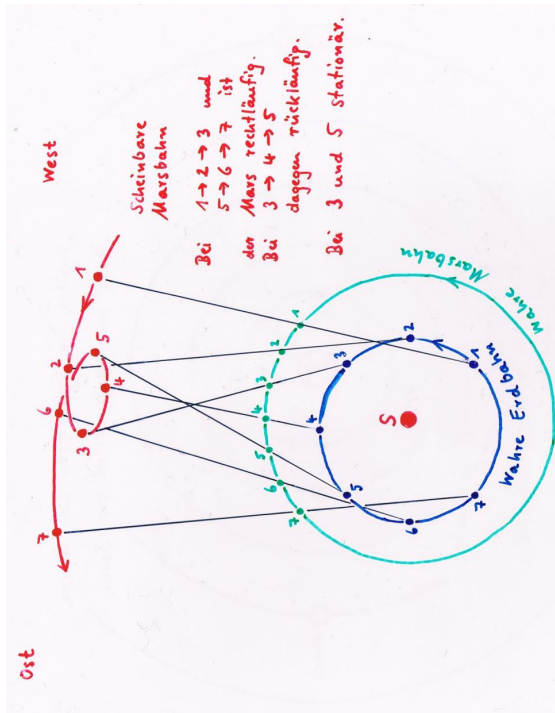 Ost
West
7
6
2
1
3
4
5
Scheinbare
Marsbahn
Bei 1→2→3 und
5→6→7 ist
der Mars rechtläufig.
Bei 3→4→5
dagegen rückläufig.
Bei 3 und 5 stationär.
7
6
5
4
3
2
1
5
4
3
6
S
2
7
1
Wahre Erdbahn
Wahre Marsbahn